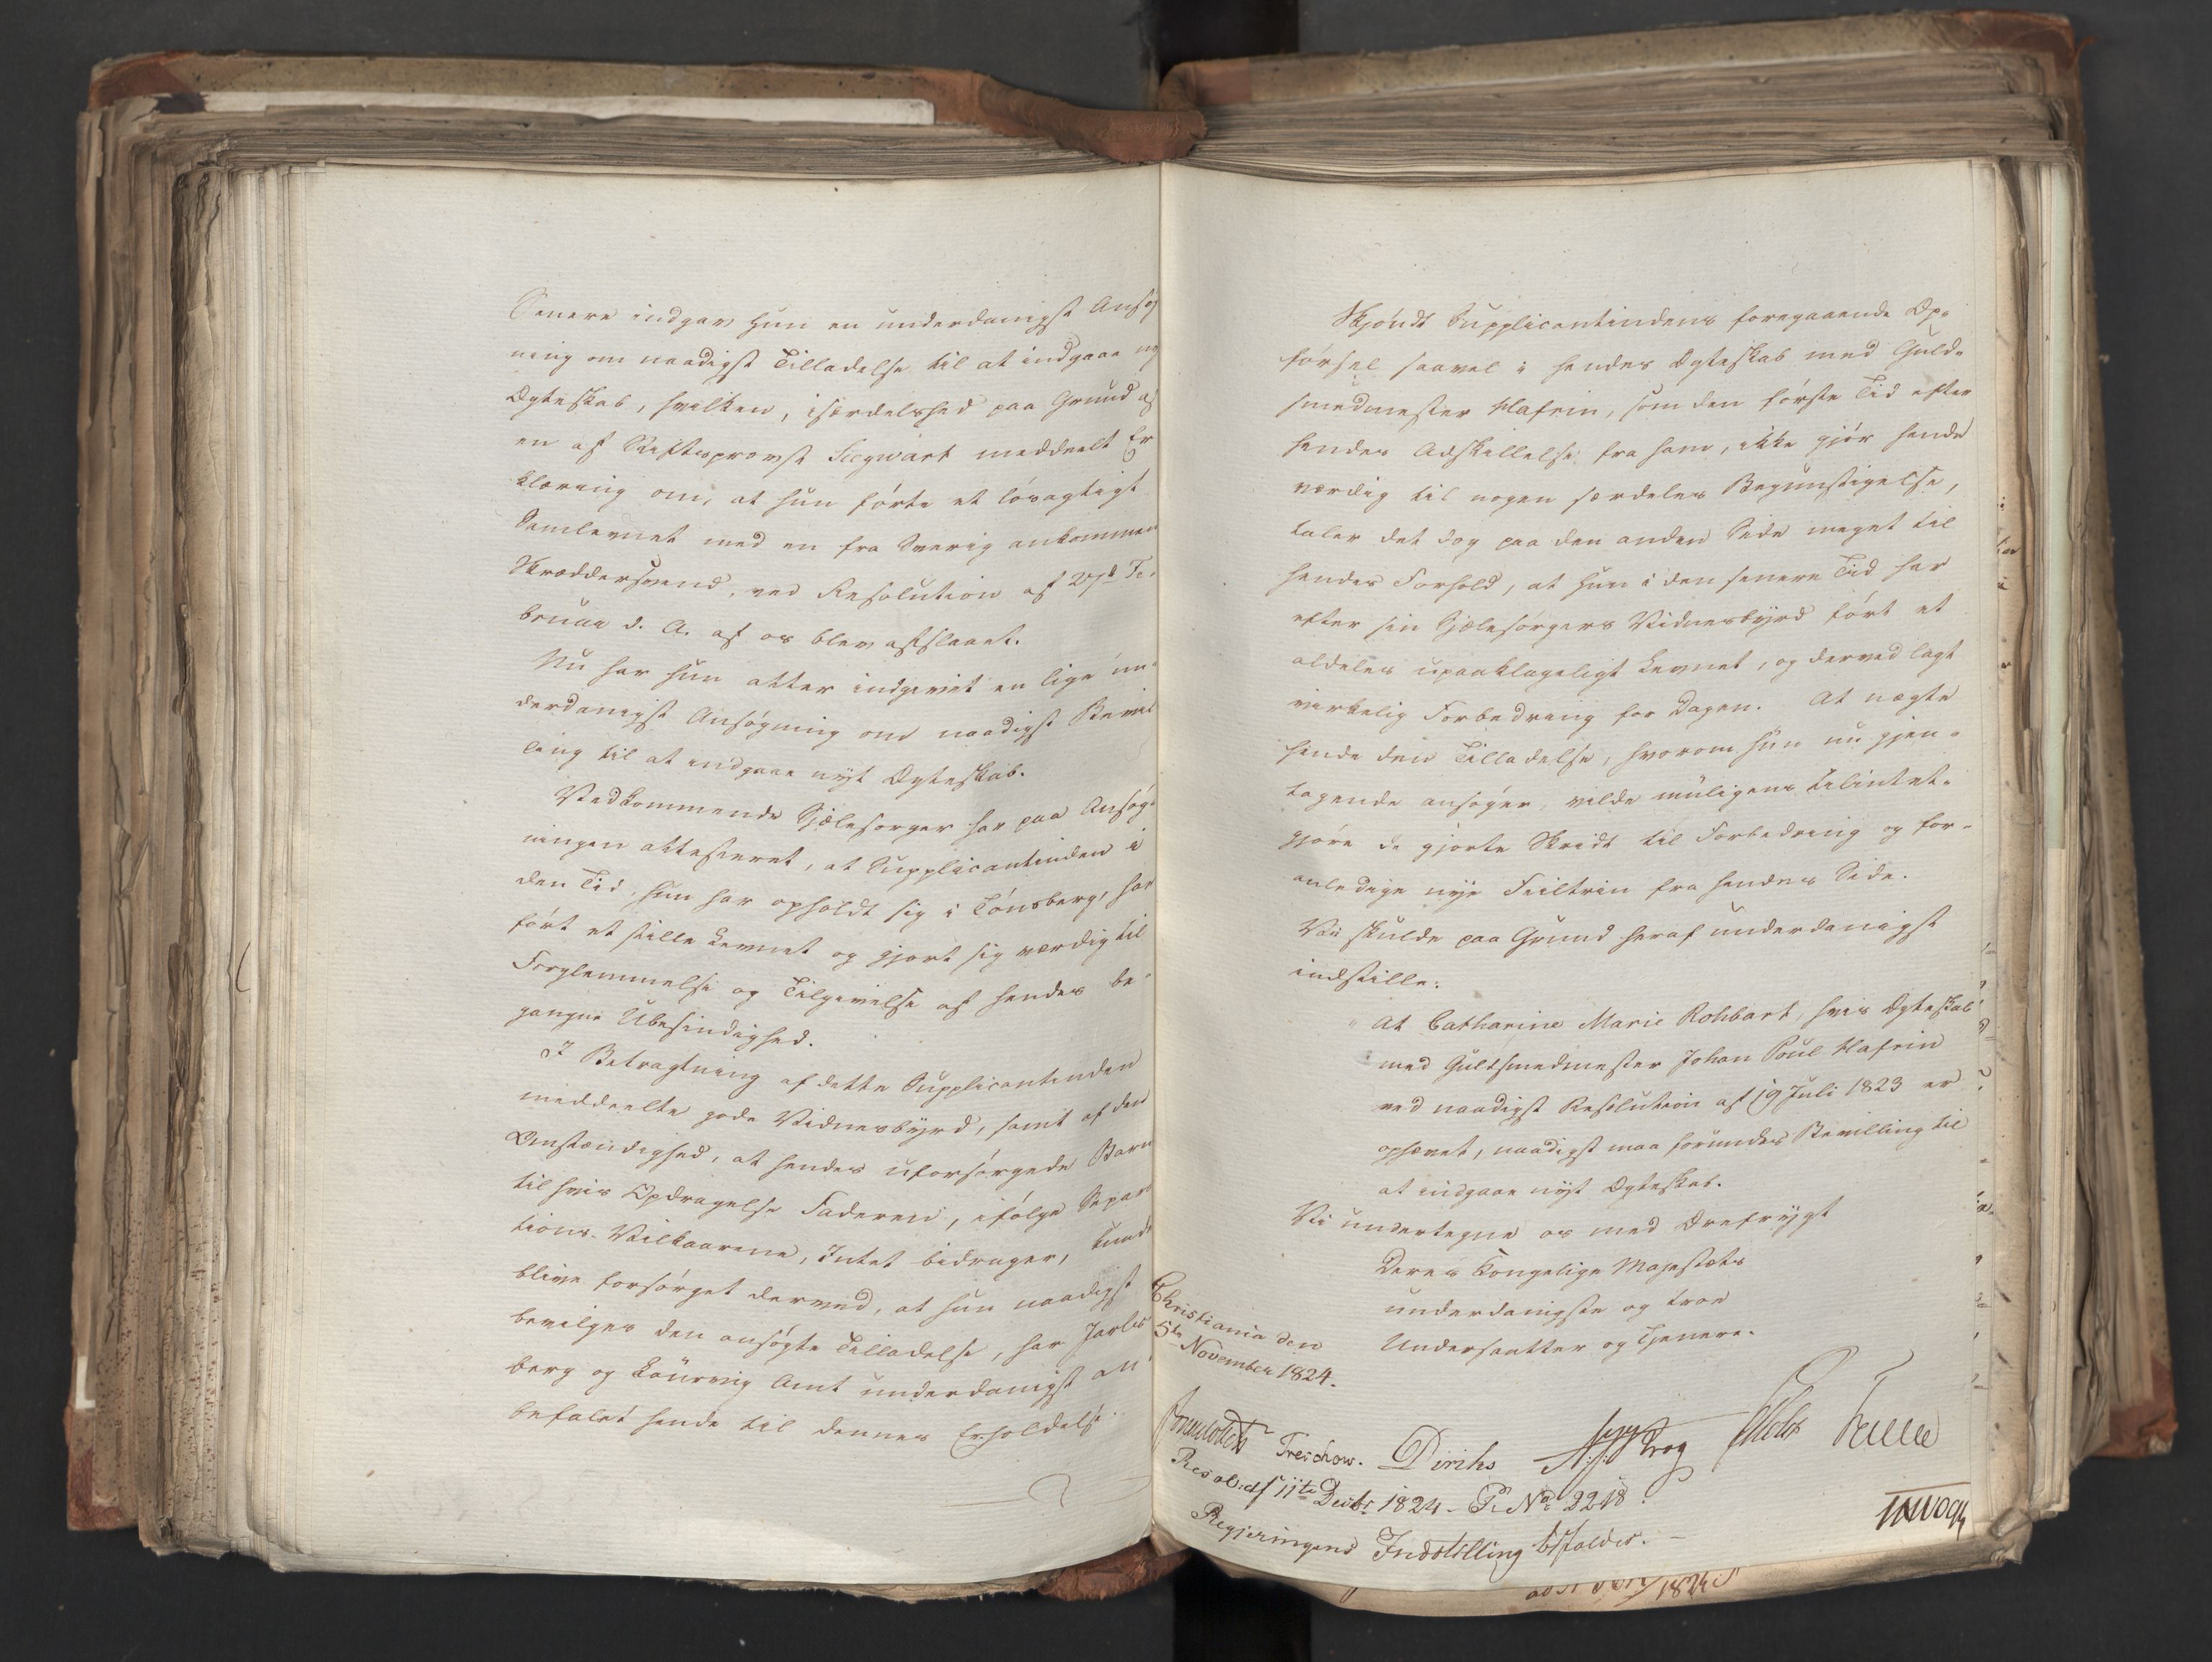 Senere indgav hun en underdanigst Ansøg
ning om naadigst Tilladelse til at indgaae nyt
Ægteskab, hvilken, isærdeleshed paa Grund af
en af Stiftsprovst Siegwart meddeelt Er
klæring om, at hun førte et løsagtigt
Samlevnet med en fra Sverig ankommen
Skræddersvend, ved Resolution af 27de Fe-
bruar d. A. af os blev afslaaet.
Nu har hun atter indgivet en lige un-
derdanigst Ansøgning om naadigst Bevil
ling til at indgaae nyt Ægteskab.
Vedkommende Sjælesørger har paa Ansøg-
ningen attesteret, at Supplicantinden i
den Tid, hun har opholdt sig i Tønsberg, har
ført et stille Levnet og gjort sig værdig til
Forglemmelse og Tilgivelse af hendes be-
gangne Ubesindighed.
I Betragtning af dette Supplicantinden
meddeelte gode Vidnesbyrd, samt af den
Omstændighed, at hendes uforsørgede Barn
til hvis Opdragelse Faderen, ifølge Separa
tions-Vilkaarene, Intet bidrager, kunde
blive forsørget derved, at hun naadigst
bevilges den ansøgte Tilladelse, har Jarls
berg og Laurvig Amt underdanigst an
befalet hende til dennes Erholdelse.
Skjøndt Supplicantindens foregaaende Op-
førsel saavel i hendes Ægteskab med Guld-
smedmester Hafrin, som den første Tid efter
hendes Adskillelse fra ham, ikke gjør hende
værdig til nogen særdeles Begunstigelse,
taler det dog paa den anden Side meget til
hendes Forhold, at hun i den senere Tid har
efter sin Sjælesørgers Vidnesbyrd ført et
aldeles upaaklageligt Levnet, og derved lagt
virkelig Forbedring for Dagen. At nægte
hende den Tilladelse, hvorom hun nu gjen-
tagende ansøger, vilde muligens tilintet-
gjøre de gjorte Skridt til Forbedring og for-
anledige nye Feiltrin fra hendes Side.
Vi skulde paa Grund heraf underdanigst
indstille:
At Catharine Marie Rohbart, hvis Ægteskab
med Guldsmedmester Johan Poul Hafrin
ved naadigst Resolution af 19 Juli 1823 er
ophævet, naadigst maa forundes Bevilling til
at indgaae nyt Ægteskab.
Vi undertegne os med Ærefrygt
Deres Kongelige Majestæts
underdanigste og troe
Undersaatter og Tjenere.
Christiania den
5te November 1824.
Treschow. Diriks Krog
Resol: af 11te Decbr 1824 - P. No 2218.
Regjeringens Indstilling bifaldes.